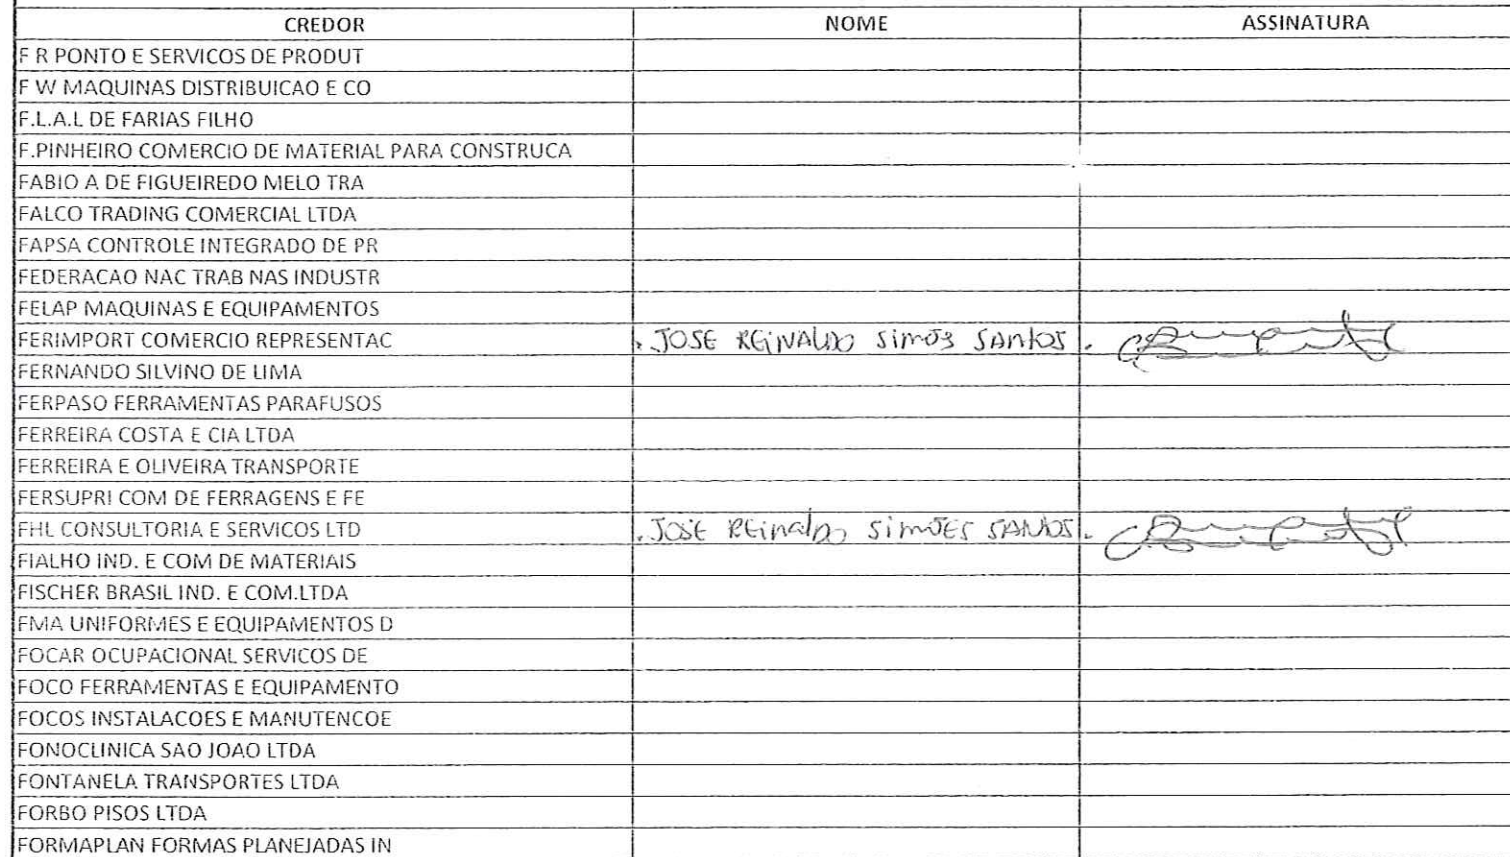 CREDOR NOME ASSINATURA
F R PONTO E SERVICOS DE PRODUT
F W MAQUINAS DISTRIBUICAO E CO
F.L.A.L DE FARIAS FILHO
F.PINHEIRO COMERCIO DE MATERIAL PARA CONSTRUCA
FABIO A DE FIGUEIREDO MELO TRA
FALCO TRADING COMERCIAL LTDA
FAPSA CONTROLE INTEGRADO DE PR
FEDERACAO NAC TRAB NAS INDUSTR
FELAP MAQUINAS E EQUIPAMENTOS
FERIMPORT COMERCIO REPRESENTAC . JOSE REINALDO SIMÕES SANTOS .
FERNANDO SILVINO DE LIMA
FERPASO FERRAMENTAS PARAFUSOS
FERREIRA COSTA E CIA LTDA
FERREIRA E OLIVEIRA TRANSPORTE
FERSUPRI COM DE FERRAGENS E FE
FHL CONSULTORIA E SERVICOS LTD . JOSÉ REINALDO SIMÕES SANTOS .
FIALHO IND. E COM DE MATERIAIS
FISCHER BRASIL IND. E COM.LTDA
FMA UNIFORMES E EQUIPAMENTOS D
FOCAR OCUPACIONAL SERVICOS DE
FOCO FERRAMENTAS E EQUIPAMENTO
FOCOS INSTALACOES E MANUTENCOE
FONOCLINICA SAO JOAO LTDA
FONTANELA TRANSPORTES LTDA
FORBO PISOS LTDA
FORMAPLAN FORMAS PLANEJADAS IN